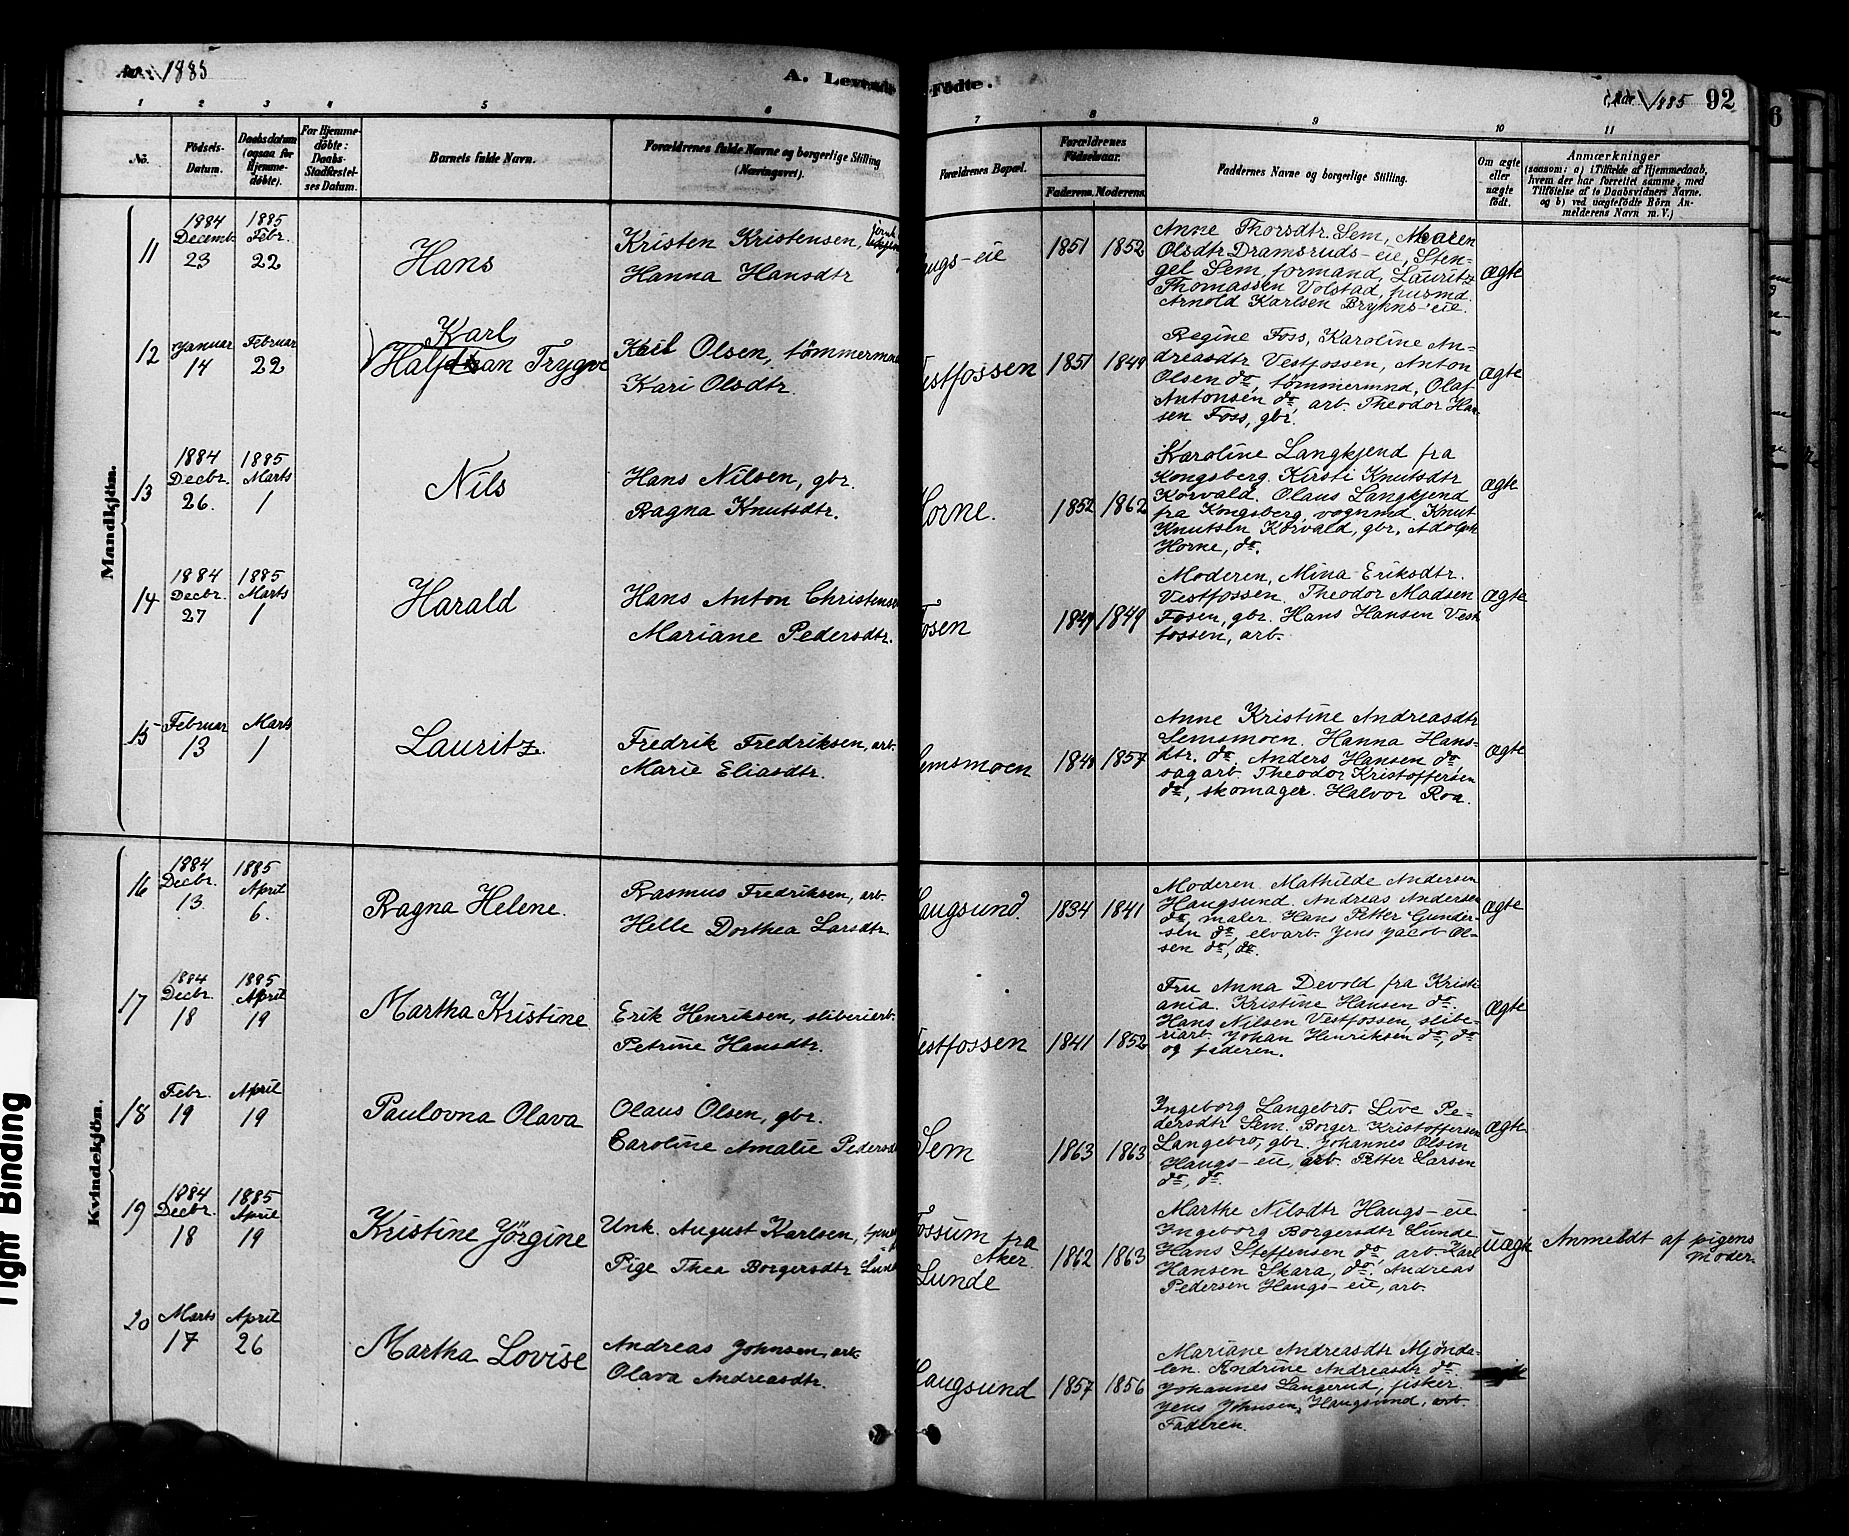 Aar 1885
A. Levende Fødte.
Aar 1885 92
1 2 3 4 5 6 7 8 9 10 11
No.
Födsels-
Datum.
Daabsdatum
(ogsaa for
Hjemme-
döbte).
For Hjemme-
döbte:
Daabs-
Stadfæstel-
ses Datum.
Barnets fulde Navn.
Forældrenes fulde Navne og borgerlige Stilling
(Næringsvei).
Forældrenes Bopæl.
Forældrenes
Födselsaar.
Faderens. Moderens.
Faddernes Navne og borgerlige Stilling.
Om ægte
eller
uægte
födt.
Anmærkninger
(saasom: a) i Tilfælde af Hjemmedaab,
hvem der har forrettet samme, med
Tilföielse af to Daabsvidners Navne.
og b) ved uægtefödte Börn An-
melderens Navn m. V.)
Mandkjön.
11
1884
Decemb.
23
1885
Febr.
22
Hans
Kristen Kristensen,
Hanna Hansdtr
ugs-eie
1851 1852
Anne Thorsdtr. Sem, Maren
Olsdtr Dramsruds-eie, Sten-
gel Sem, formand, Lauritz
Thomassen Volstad, husmd.
Arnold Karlsen Brykns-eie.
Ægte
12
Januar
14
Februar
22
Karl
Halfdan Trygve
Olsen, tömmermnd
Kari Olsdtr.
estfossen
1851 1849
Regine Foss, Karoline An-
dreasdtr Vestfossen, Anton
Olsen do, tömmermnd, Olaf
Antonsen do, arb. Theodor Han-
sen Foss, gbr.
Ægte
13
1884
Decbr.
26.
1885
Marts
1
Nils
Hans Nilsen, gbr.
Ragna Knutsdtr.
Horne.
1852 1862
Karoline Langkjend fra
Kongsberg. Kirsti Knutsdtr
Korvald. Olaus Langkjend
fra Kongsberg, vognmd. Knut
Knutsen Korvald, gbr. Adolph
Horne, do.
Ægte
14
1884
Decbr.
27
1885
Marts
1
Harald
Hans Anton Christensen
Mariane Pedersdtr.
Fosen
1849 1849
Moderen, Mina Eriksdtr.
Vestfossen. Theodor Madsen
Fosen, gbr. Hans Hansen Vest-
fossen, arb.
Ægte
15
Februar
13
Marts
1
Lauritz.
Fredrik Fredriksen, arb.
Marie Eliasdtr.
Semsmoen
1848 1857
Anne Kristine Andreasdtr
Semsmoen. Hanna Hans-
dtr. do. Anders Hansen do
sagarb. Theodor Kristoffersen
do, skomager. Halvor Roa.
Ægte
Kvindekjön.
16
1884
Decbr.
13.
1885
April
6.
Ragna Helene.
Rasmus Fredriksen, arb.
Helle Dorthea Larsdtr.
Haugsund
1834 1841
Moderen. Mathilde Andersen
Haugsund. Andreas Andersen
do, maler. Hans Petter Gunder-
sen do, elvarb. Jens Jacob Ol-
sen do, do.
Ægte
17
1884
Decbr.
18
1885
April
19
Martha Kristine
Erik Henriksen, sliberiarb.
Petrine Hansdtr.
estfossen
1841 1852
Fru Anna Devold fra Kristi-
ania. Kristine Hansen do.
Hans Nilsen Vestfossen, slibe-
riarb. Johan Henriksen do, do
og faderen.
Ægte
18
Febr.
19
April
19
Paulovna Olava
Olaus Olsen, gbr.
Caroline Amalie Pedersdtr
Sem
1863 1863
Ingeborg Langebro. Live Pe-
dersdtr Sem. Borger Kristoffersen
Langebro, gbr. Johannes Olsen
Haugs-eie, arb. Petter Larsen
do, do.
Ægte
19
1884
Decbr.
18
1885
April
19
Kristine Jörgine
Unk. August Karlsen,
Pige Thea Borgersdtr Lunde
Fossum fra
Aker
Lunde
1862 1863
Marthe Nilsdtr Haugs-eie
Ingeborg Borgersdtr Lunde
Hans Steffensen do, arb. Karl
Hansen Skara, do, Andreas
Pedersen Haugs-eie, arb.
Uægte
Anmeldt af pigens
moder.
20
Marts
17
April
26
Martha Lovise
Andreas Johnsen, arb.
Olava Andreasdtr.
Haugsund
1857 1856
Mariane Andreasdtr Mjönda-
len. Andrine Andreasdtr do.
Johannes Langerud, fisker
Jens Johnsen, Haugsund, arb.
Faderen.
Tight Binding